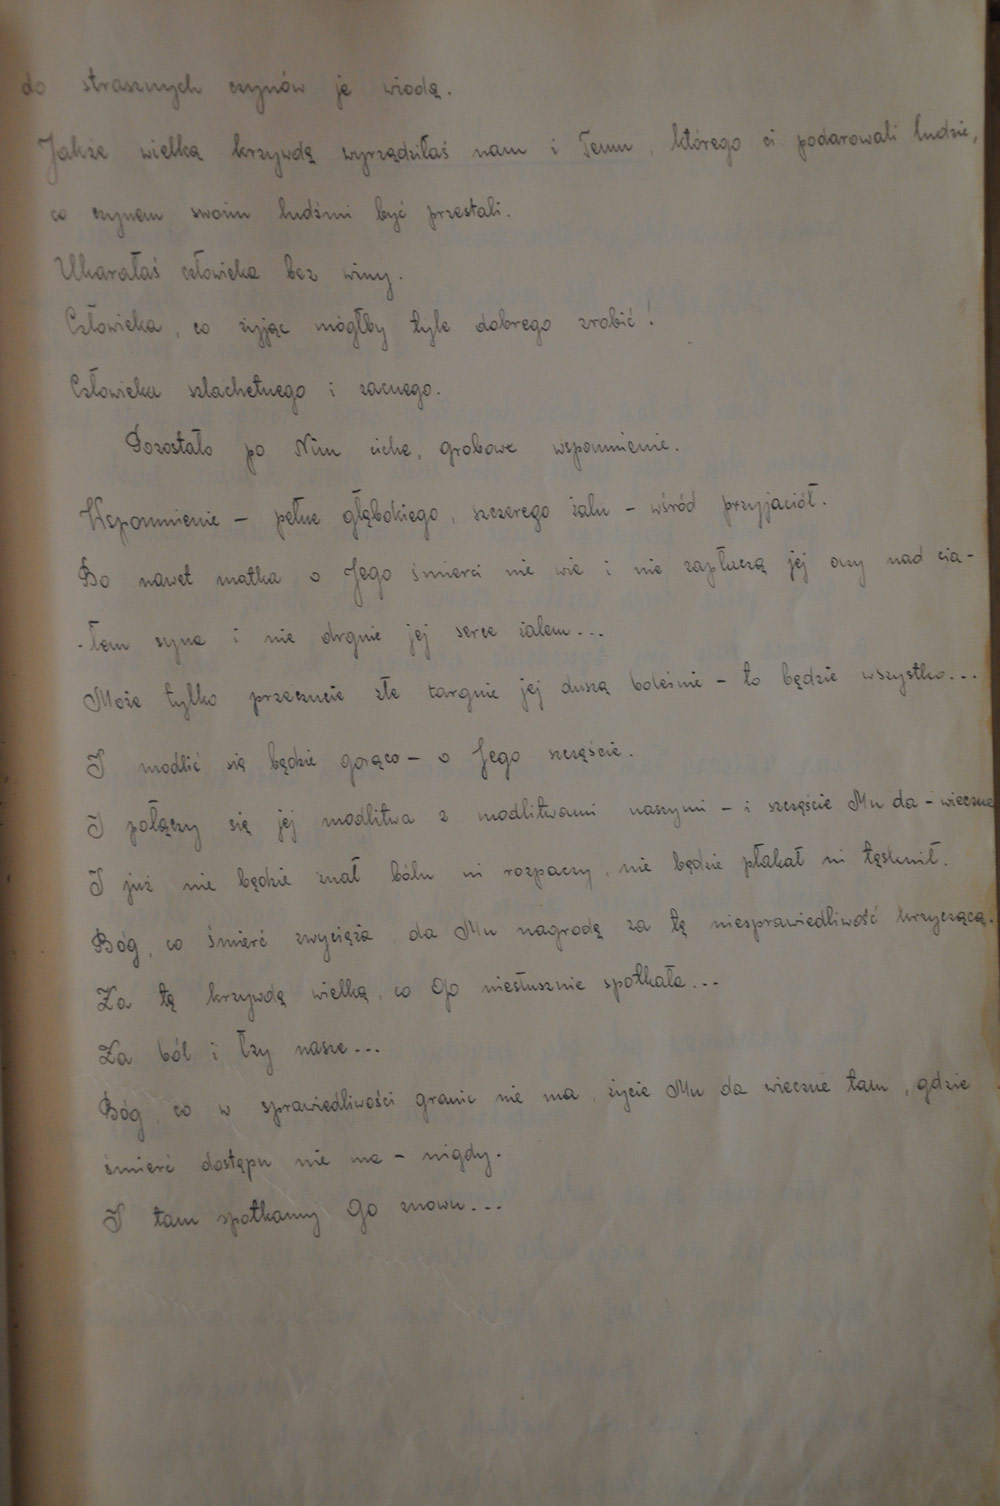 do strasznych czynów je wiodą.
Jakże wielką krzywdę wyrządziłaś nam i Temu, którego ci podarowali ludzie,
co czynem swoim ludźmi być przestali.
Ukarałaś człowieka bez winy.
Człowieka, co żyjąc mógłby tyle dobrego zrobić!
Człowieka szlachetnego i zacnego.
Pozostało po Nim ciche, grobowe wspomnienie.
Wspomnienie – pełne głębokiego, szczerego żalu – wśród przyjaciół.
Bo nawet matka o Jego śmierci nie wie i nie zapłaczą jej oczy nad cia-
-łem syna i nie drgnie jej serce żalem...
Może tylko przeczucie złe targnie jej duszą boleśnie – to będzie wszystko...
I modlić się będzie gorąco – o Jego szczęście.
I połączy się jej modlitwa z modlitwami naszymi – i szczęście Mu da – wieczne
I już nie będzie znał bólu ni rozpaczy, nie będzie płakał ni tęsknił.
Bóg, co śmierć zwycięża, da Mu nagrodę za tę niesprawiedliwość krzyczącą.
Za tę krzywdę wielką, co Go niesłusznie spotkała...
Za ból i łzy nasze...
Bóg, co w sprawiedliwości granic nie ma, życie Mu da wieczne tam, gdzie
śmierć dostępu nie ma – nigdy.
I tam spotkamy Go znowu...